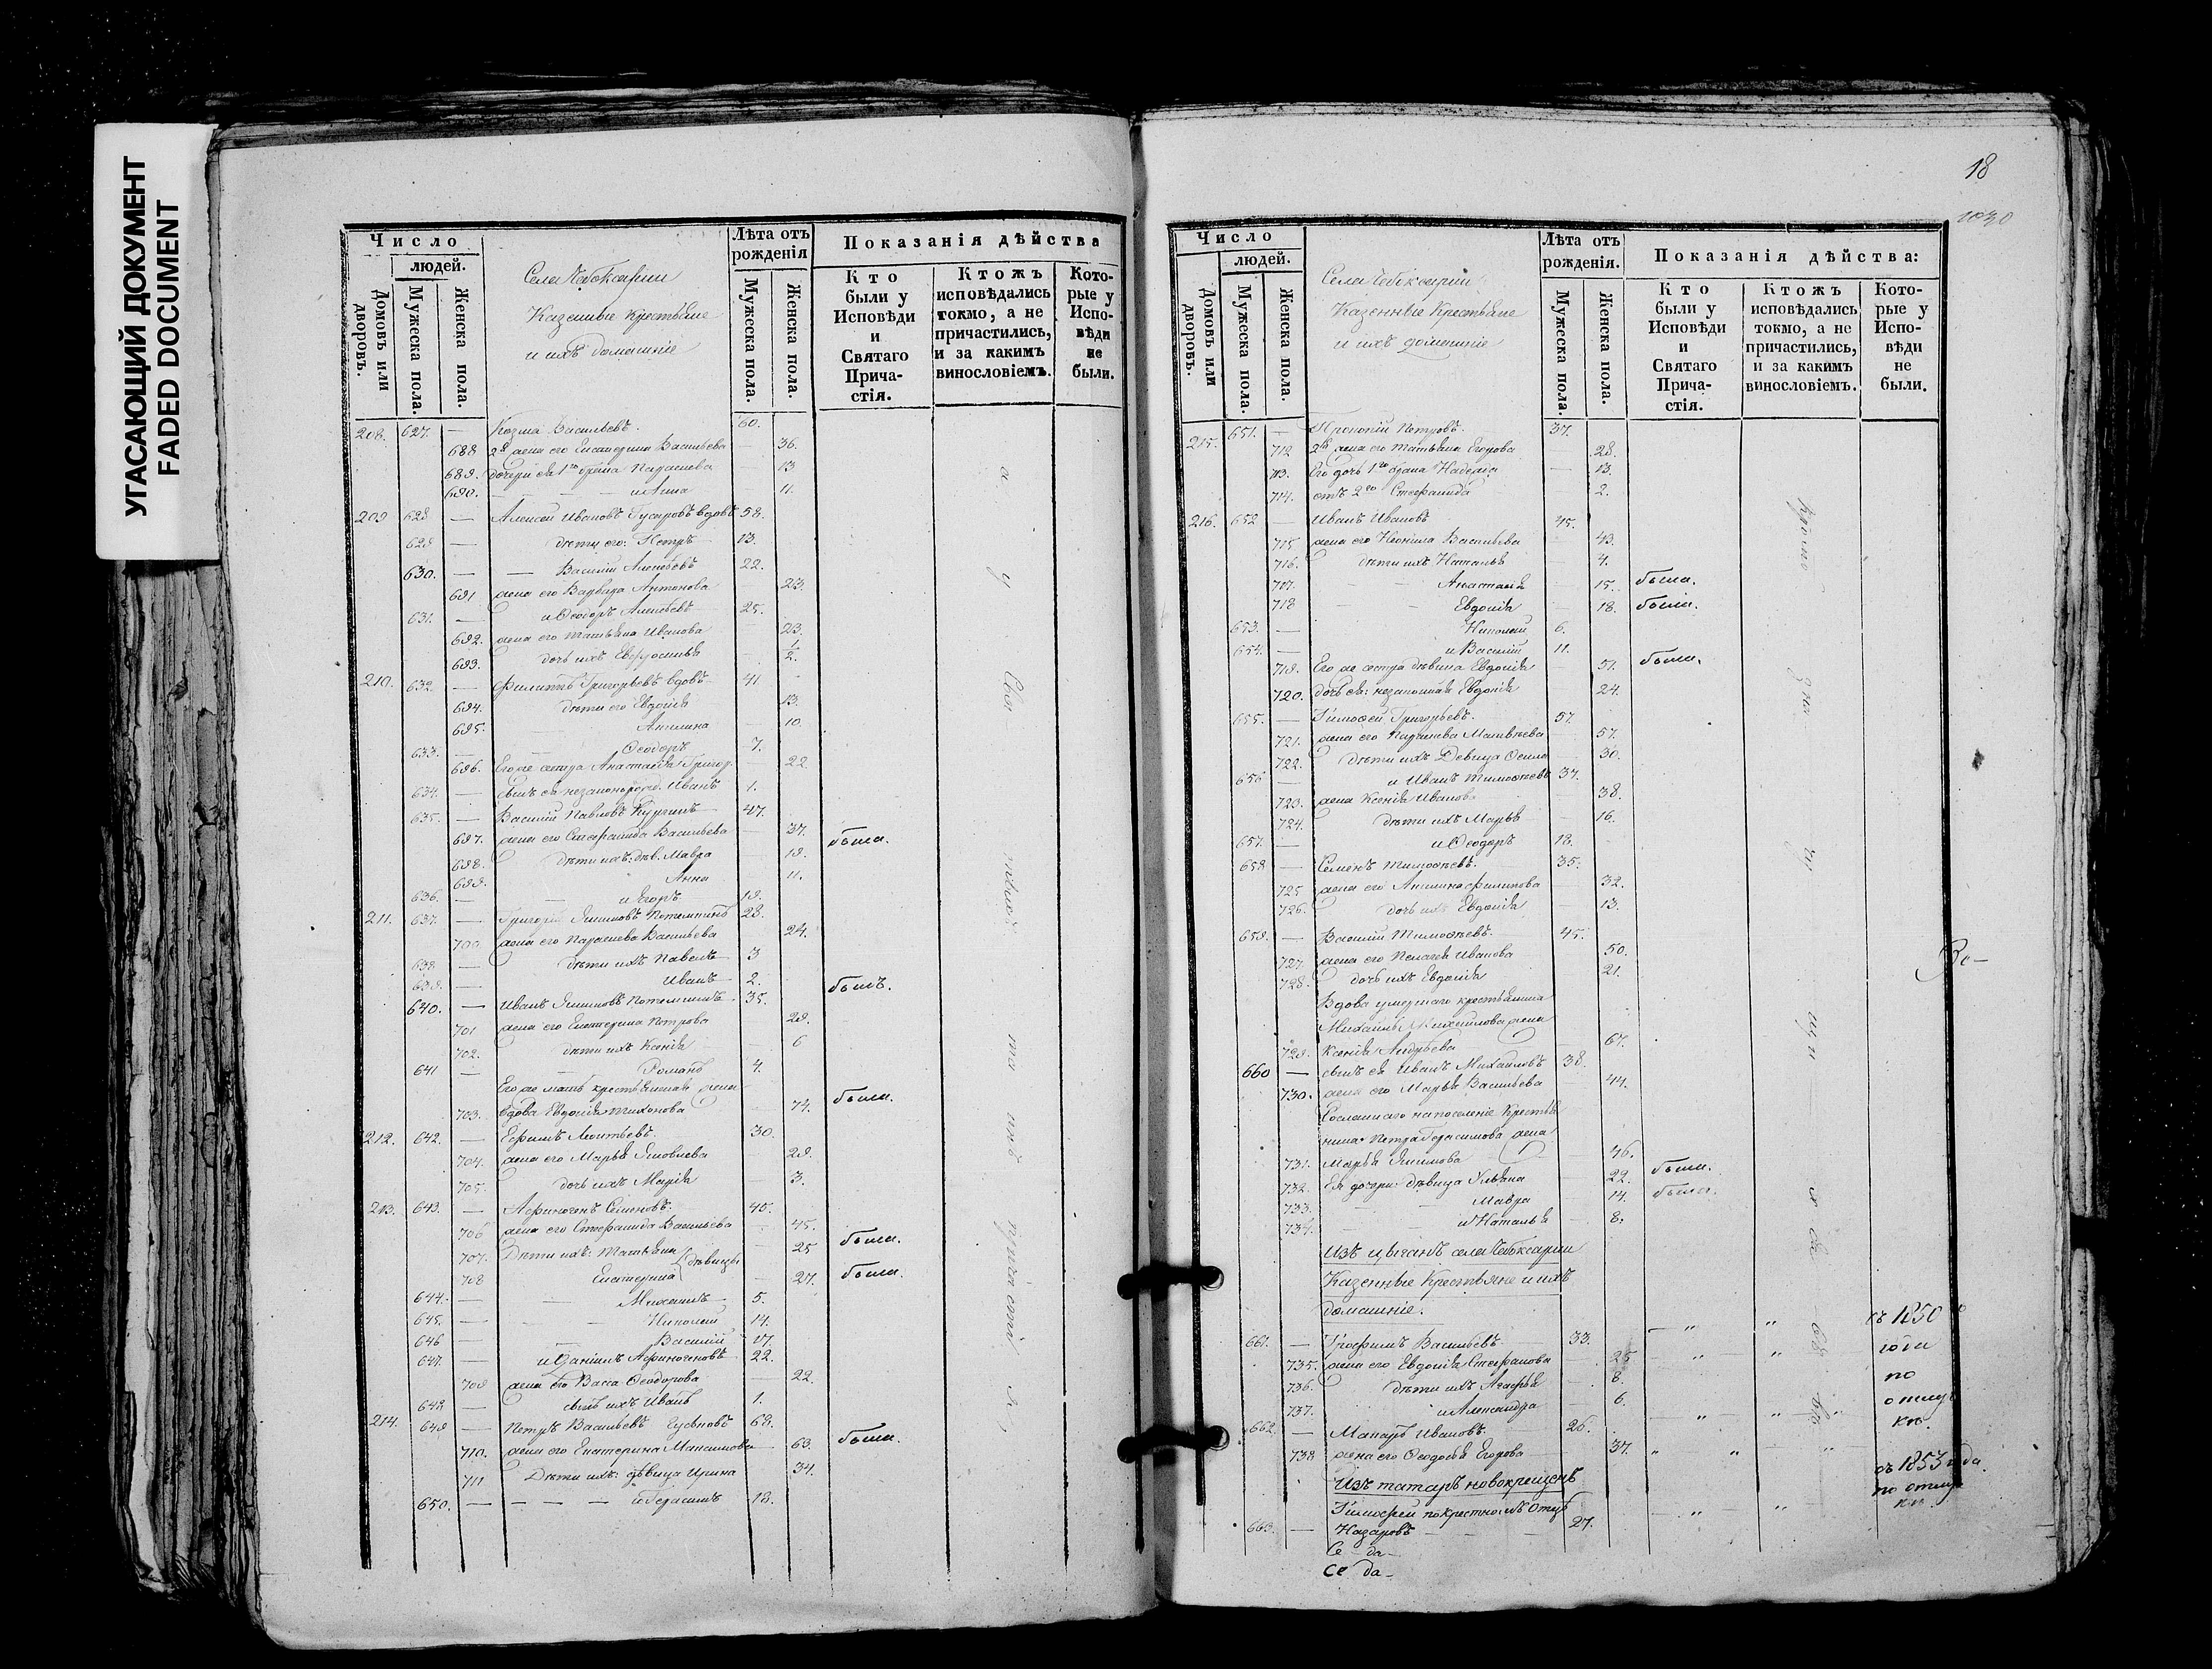 УГАСАЮЩИЙ ДОКУМЕНТ
FADED DOCUMENT
Число
людей.
Домовъ или дворовъ.
Мужеска пола.
Женска пола.
Села Чебоксарии
Казенные Крестьяне
и ихъ домашніе
Лѣта отъ рожденія
Мужеска пола.
Женска пола.
Показанія дѣйства
Кто были у Исповѣди и Святаго Прича-стія.
Ктожъ исповѣдались токмо, а не причастились, и за какимъ винословіемъ.
Кото-рые у Испо-вѣди не были.
208. 627. — Козма Васильевъ. 60.
688 2я жена его Екатерина Васильева 36.
689. дочери ея 1го брака Параскева 13
690. — и Анна 11.
209 628 — Алексѣй Ивановъ вдовъ 58.
629 — дѣти его: Петръ 13.
630. — Василій Алексѣевъ 22.
691 жена его Варвара Антонова 23.
631. — и Ѳеодоръ Алексѣевъ 25.
692. жена его Татьяна Иванова 23.
693. дочь ихъ Евфросинья 1/2.
210. 632. — Филиппъ Григорьевъ вдовъ 41
694. дѣти его Евдокія 13.
695. Акилина 10.
633. — Ѳеодоръ 7.
696. Его же сестра Анастасія Григор. 22
634. — сынъ ея незаконнорожд. Иванъ 1.
635. — Василій Павловъ 47.
697. жена его Степанида Васильева 37. была.
698. дѣти ихъ: дѣв. Мавра 19.
699. Анна 11.
636. — и Егоръ 19.
211. 637. — Григорій Якимовъ Потемкинъ 23.
700 жена его Параскева Васильева 24.
638 — дѣти ихъ Павелъ 3
639. — Иванъ 2.
640. — Иванъ Якимовъ Потемкинъ 35. былъ.
701 жена его Екатерина Петрова 29.
702. дѣти ихъ Ксенія 6
641 — Романъ 4.
Его же мать крестьянская жена
703. вдова Евдокія Тихонова 74. была.
212. 642. — Ефимъ Леонтьевъ. 30.
704. жена его Марья Яковлева 29.
705. дочь ихъ Марія 3.
213. 643. — Афиногенъ Семеновъ. 45.
706 жена его Степанида Васильева 45.
707. Дѣти ихъ: Татьяна 25 была.
дѣвицы
708 Екатерина 27. была.
644. — Михаилъ 5.
645. — Николай 14.
646 — Василій 17.
647. — и Даніилъ Афиногеновъ 22.
709 жена его Васса Ѳеодорова 22.
648 — сынъ ихъ Иванъ 1.
214. 649 — Петръ Васильевъ 68.
710. жена его Екатерина Максимова 63. была.
711 Дѣти ихъ: дѣвица Ирина 34.
650. — и Герасимъ 18.
18
1030
Число
людей.
Домовъ или дворовъ.
Мужеска пола.
Женска пола.
Села Чебоксарии
Казенные Крестьяне
и ихъ домашніе
Лѣта отъ рожденія.
Мужеска пола.
Женска пола.
Показанія дѣйства:
Кто были у Исповѣди и Святаго Прича-стія.
Ктожъ исповѣдались токмо, а не причастились, и за какимъ винословіемъ.
Кото-рые у Испо-вѣди не были.
215. 651. — Прокопій Петровъ. 37.
712 2я жена его Татьяна Егорова 28.
713. Его дочь 1го брака Надежда 13.
714. отъ 2го Степанида 2.
216. 652 — Иванъ Ивановъ 45.
715 жена его Неонила Васильева 43.
716. дѣти ихъ Наталья 4.
717. Анастасія 15. была.
718 Евдокія 18. была.
653. — Николай 6.
654. — и Василій 11.
719. Его же сестра дѣвица Евдокія 51. была.
720. дочь ея: незаконная Евдокія 24.
655. — Тимоѳей Григорьевъ. 57.
721. жена его Параскева Матвѣева 57.
722. дѣти ихъ Девица 30.
656 — и Иванъ Тимоѳеевъ 37.
723. жена Ксенія Иванова 38.
724. дѣти ихъ Марья 16.
657. — и Ѳеодоръ 18.
658 — Семенъ Тимоѳеевъ. 35.
725 жена его Акилина Филипова 32.
726. дочь ихъ Евдокія 13.
659. — Василій Тимоѳеевъ. 45.
727. жена его Пелагея Иванова 50.
728. дочь ихъ Евдокія 21.
Вдова умершаго крестьянина
Михаила Михайлова жена
729. Ксенія Андреева 67.
660 — сынъ ея Иванъ Михайловъ 38.
730. жена его Марья Васильева 44.
Сосланнаго на поселеніе Крестья
нина Петра Герасимова жена
731. Марья Якимова 46.
732. Ея дочери: дѣвица Ульяна 22. была.
733. Мавра 14. была.
734. и Наталья 8.
Изъ цыганъ села Чебоксарии
Казенные Крестьяне и ихъ
домашніе.
661. — Трофимъ Васильевъ 33. съ 1850
735. жена его Евдокія Степанова 25 года
736. дѣти ихъ Агафья 8. по
737. и Александра 6. отлуч
662. — Макаръ Ивановъ. 26. кѣ.
738 жена его Ѳеодосья Егорова 37.
Изъ татаръ новокрещенъ съ 1853 года
Тимоѳей по крестномъ отцѣ по отлуч
663. — Назаровъ 27. кѣ.
Се - да -
Се да -